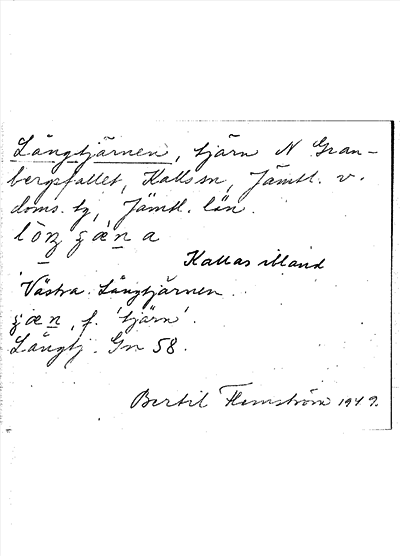 Långtjärnen, tjärn N Gran-
bergsfallet, Kalls sn, Jämtl. v.
doms. tg, Jämtl. län.
lôŋ ʒæ̀n a
Kallas ibland
Västra Långtjärnen.
ʒæn, f. 'tjärn'.
Långtj. Gn 58.
Bertil Flemström 1949.